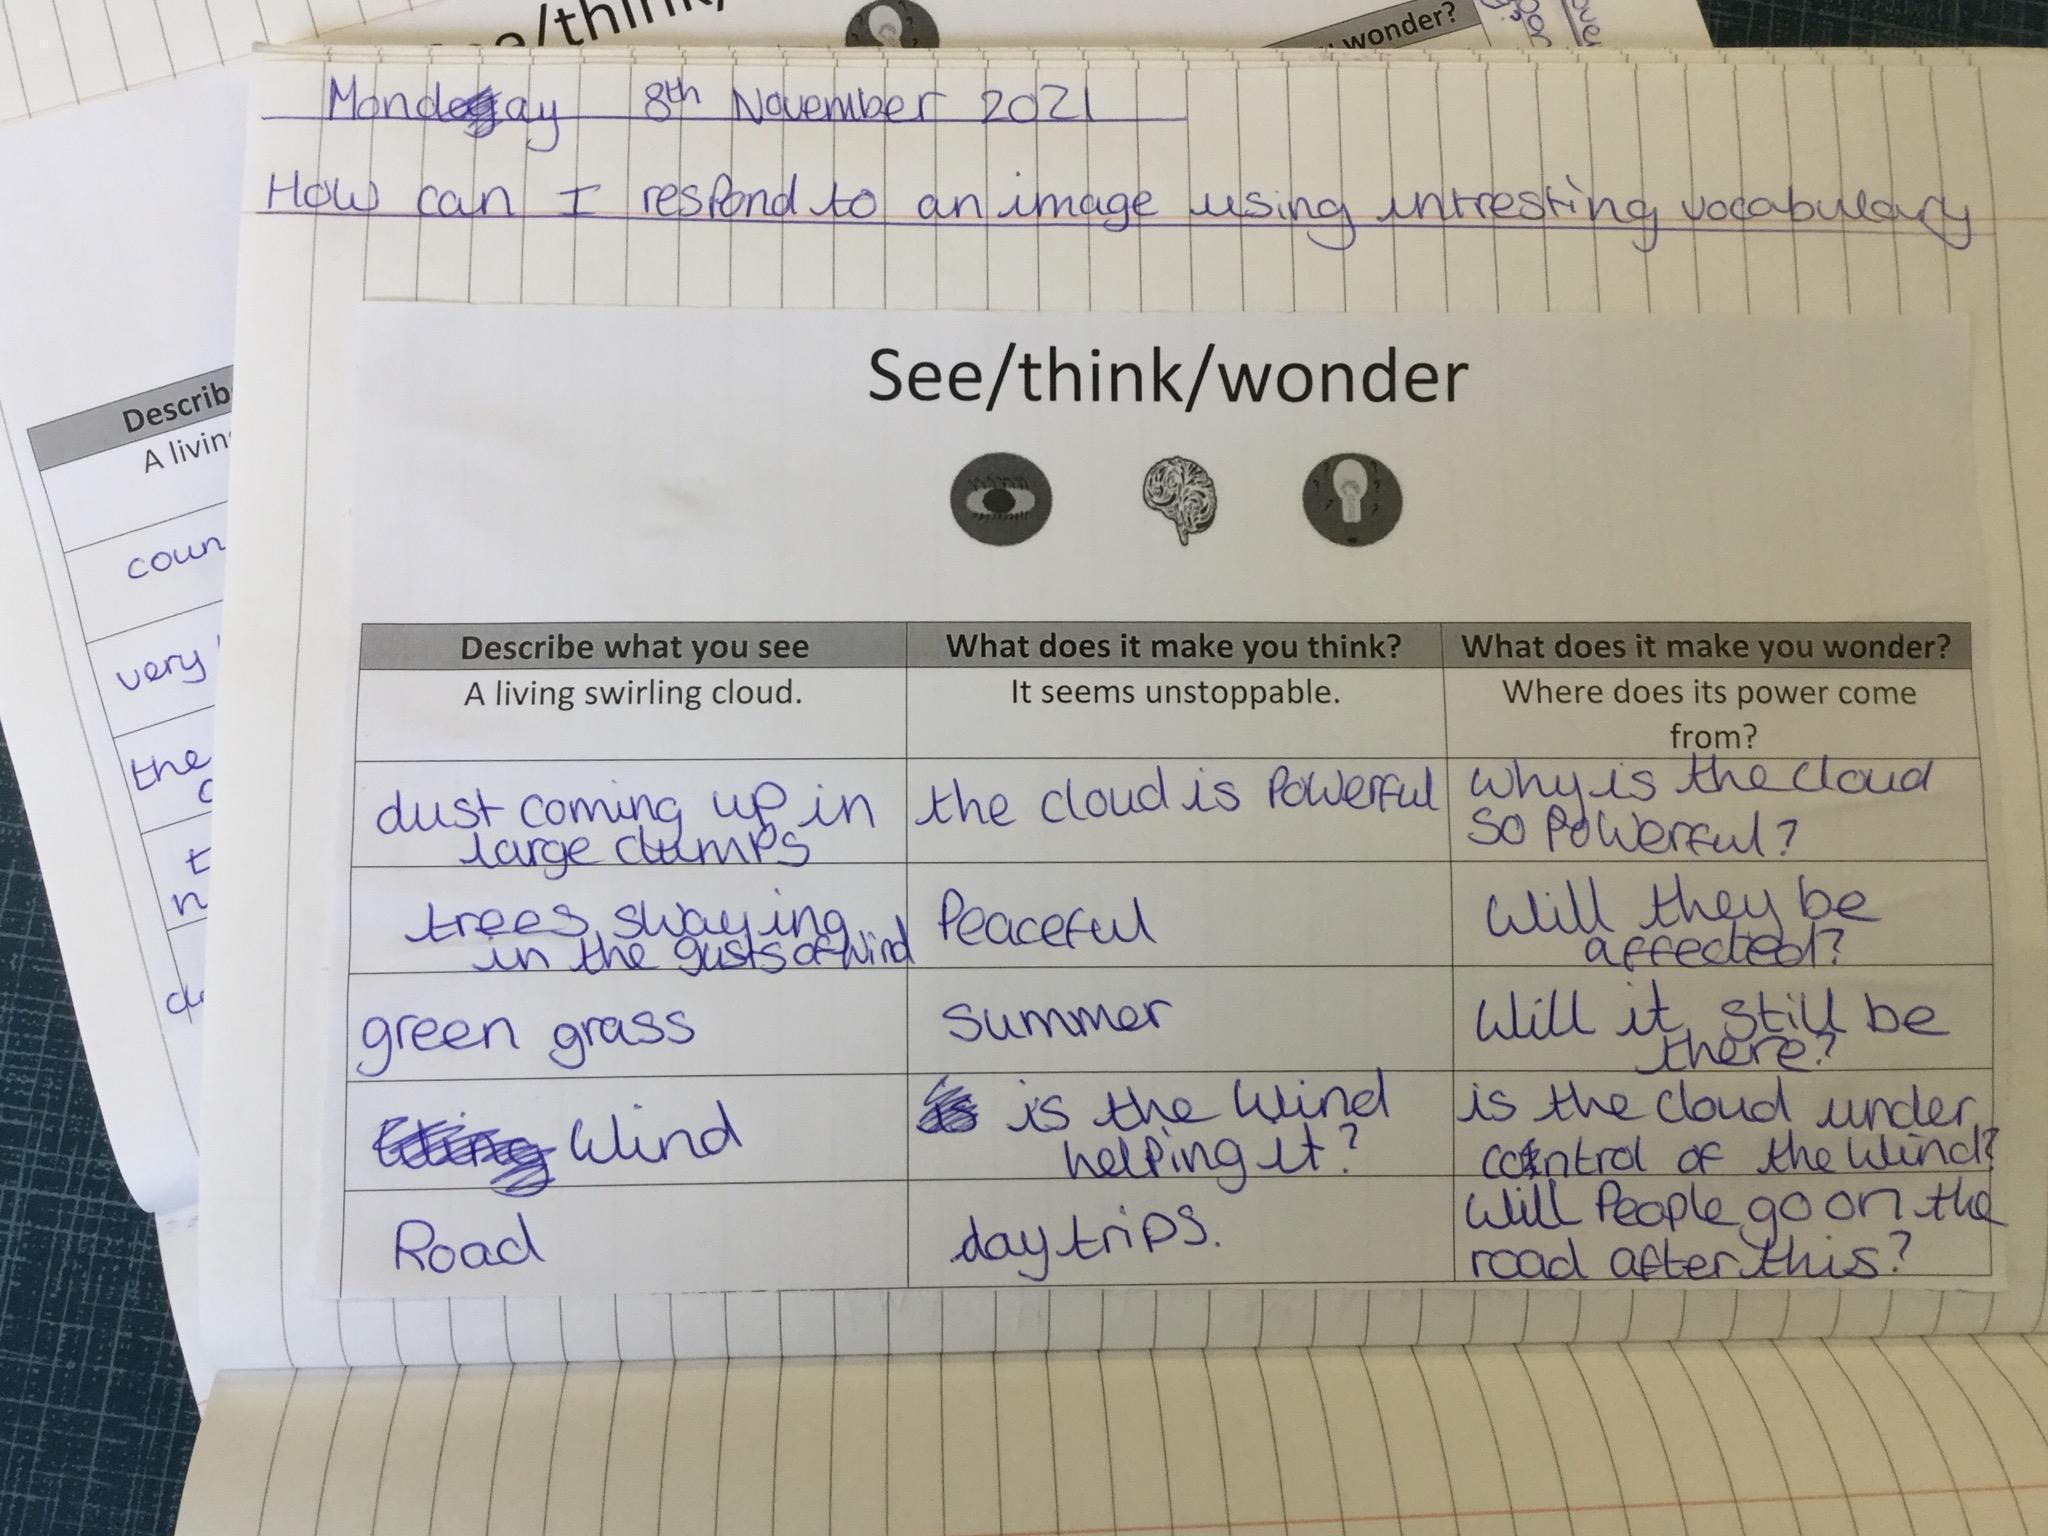 e/think/
wonder?
Monday 8th November 2021
How can I respond to an image using intresting vocabulary
See/think/wonder
Describ
A livin
coun
very
the
Describe what you see What does it make you think? What does it make you wonder?
A living swirling cloud. It seems unstoppable. Where does its power come
from?
dust coming up in
large clumps
the cloud is Powerful
Why is the cloud
so Powerful?
trees swaying
in the gusts of wind
Peaceful
Will they be
affected?
green grass
Summer
Will it still be
there?
Wind
is the Wind
helping it?
is the cloud under
control of the Wind?
Road
day trips.
Will People go on the
road after this?